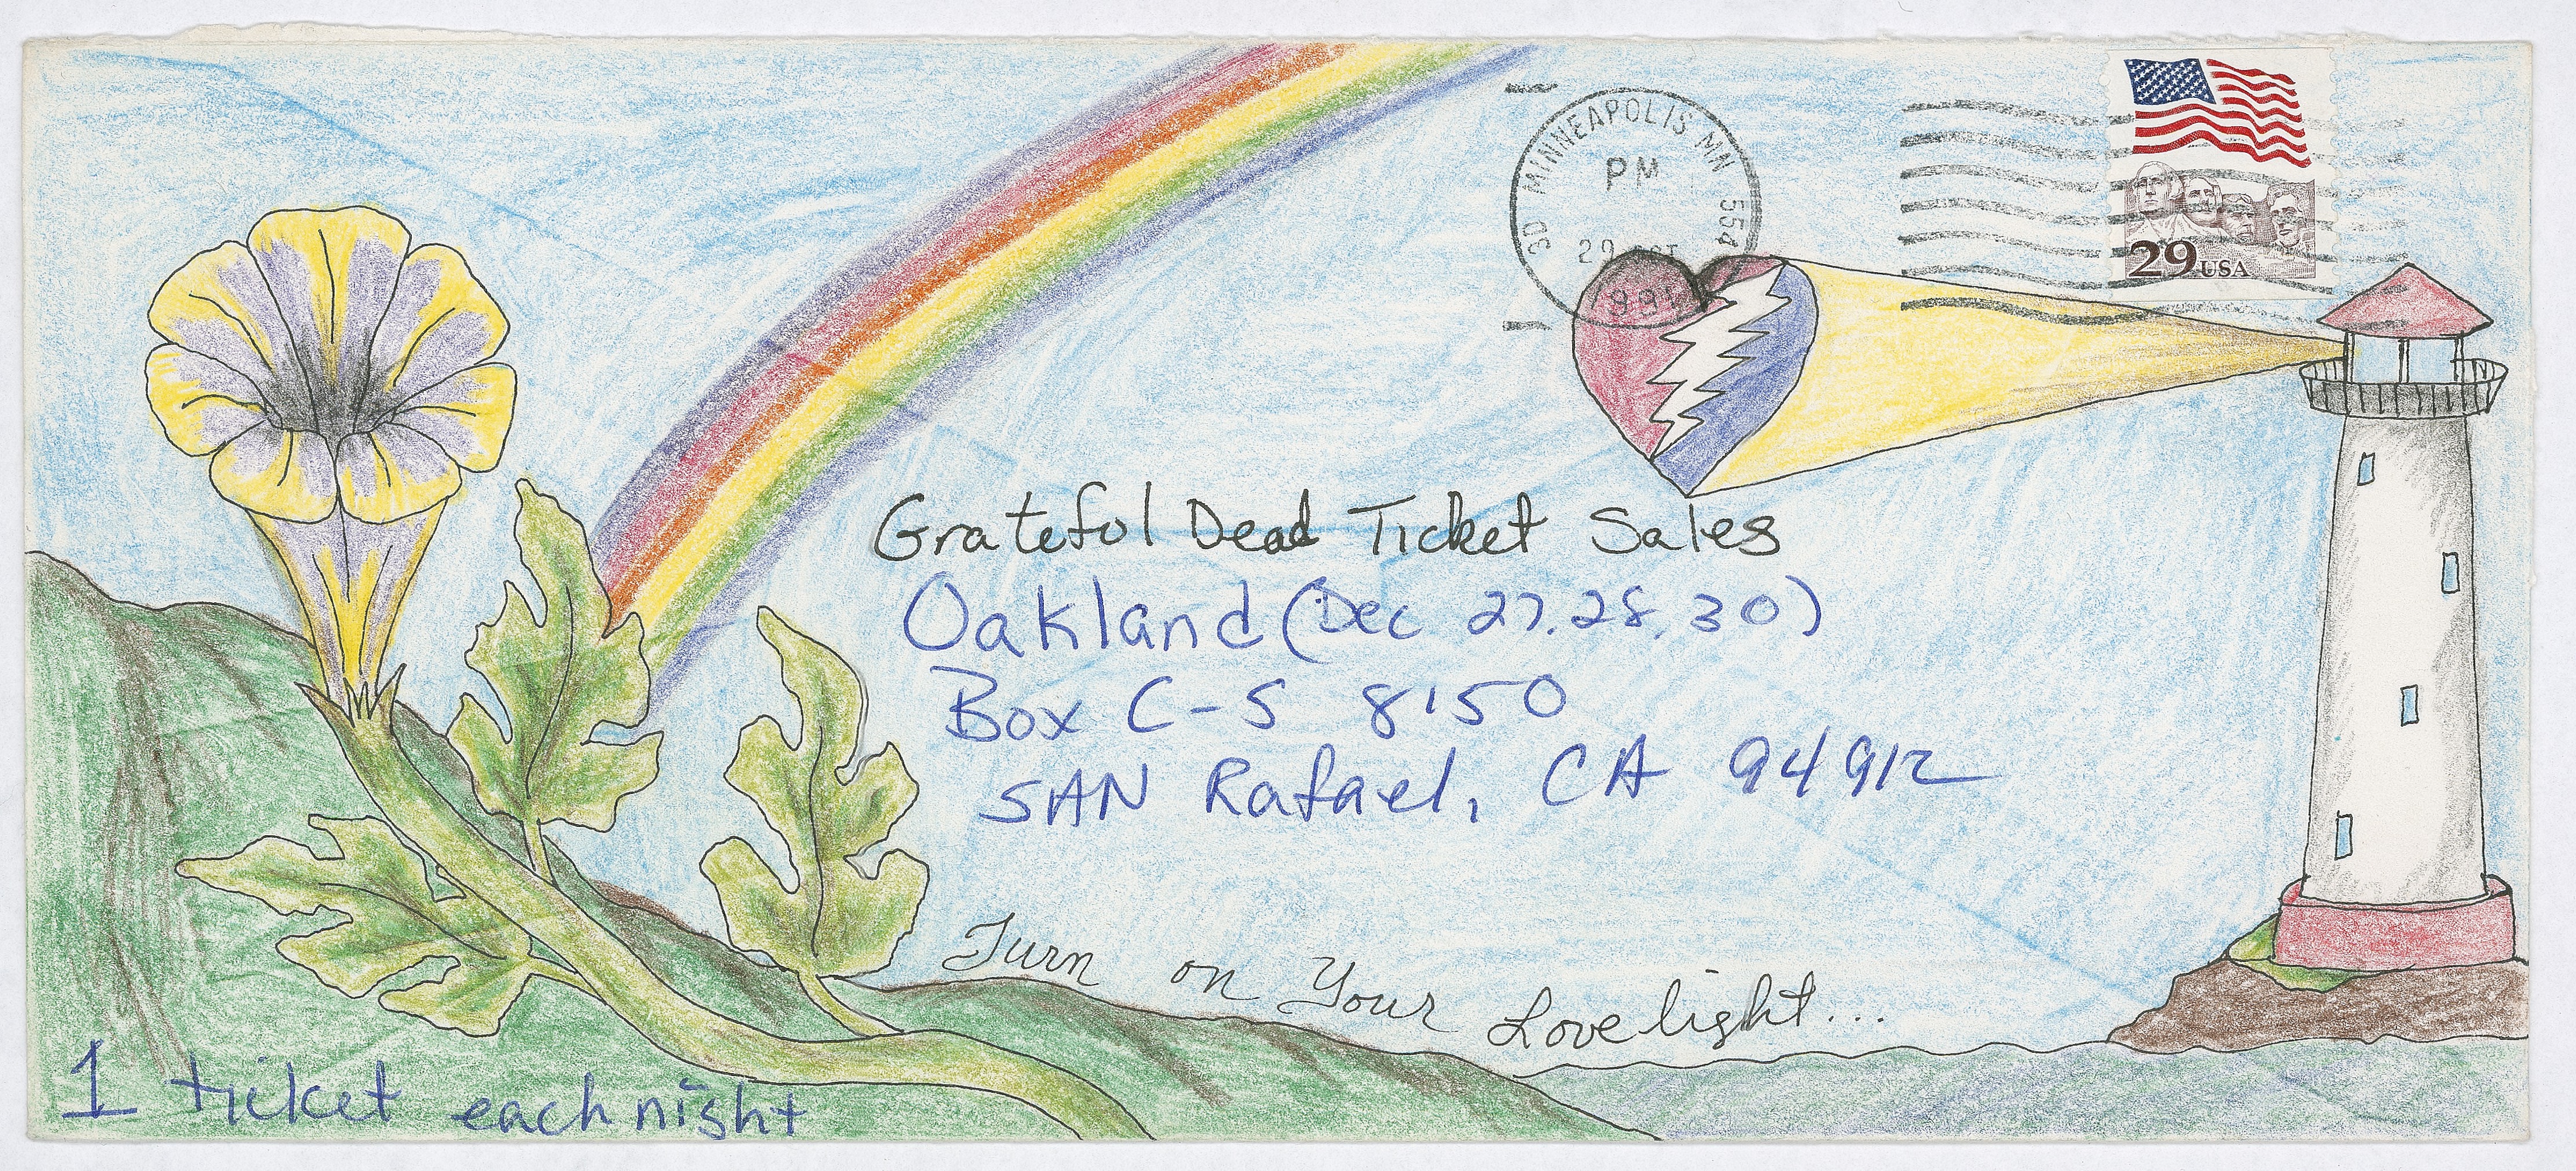 3D MINNEAPOLIS MN 554
PM
29 OCT
1991
29 USA
Grateful Dead Ticket Sales
Oakland (Dec 27, 28, 30)
Box C-S 8150
SAN Rafael, CA 94912
Turn on Your Lovelight...
1 ticket each night